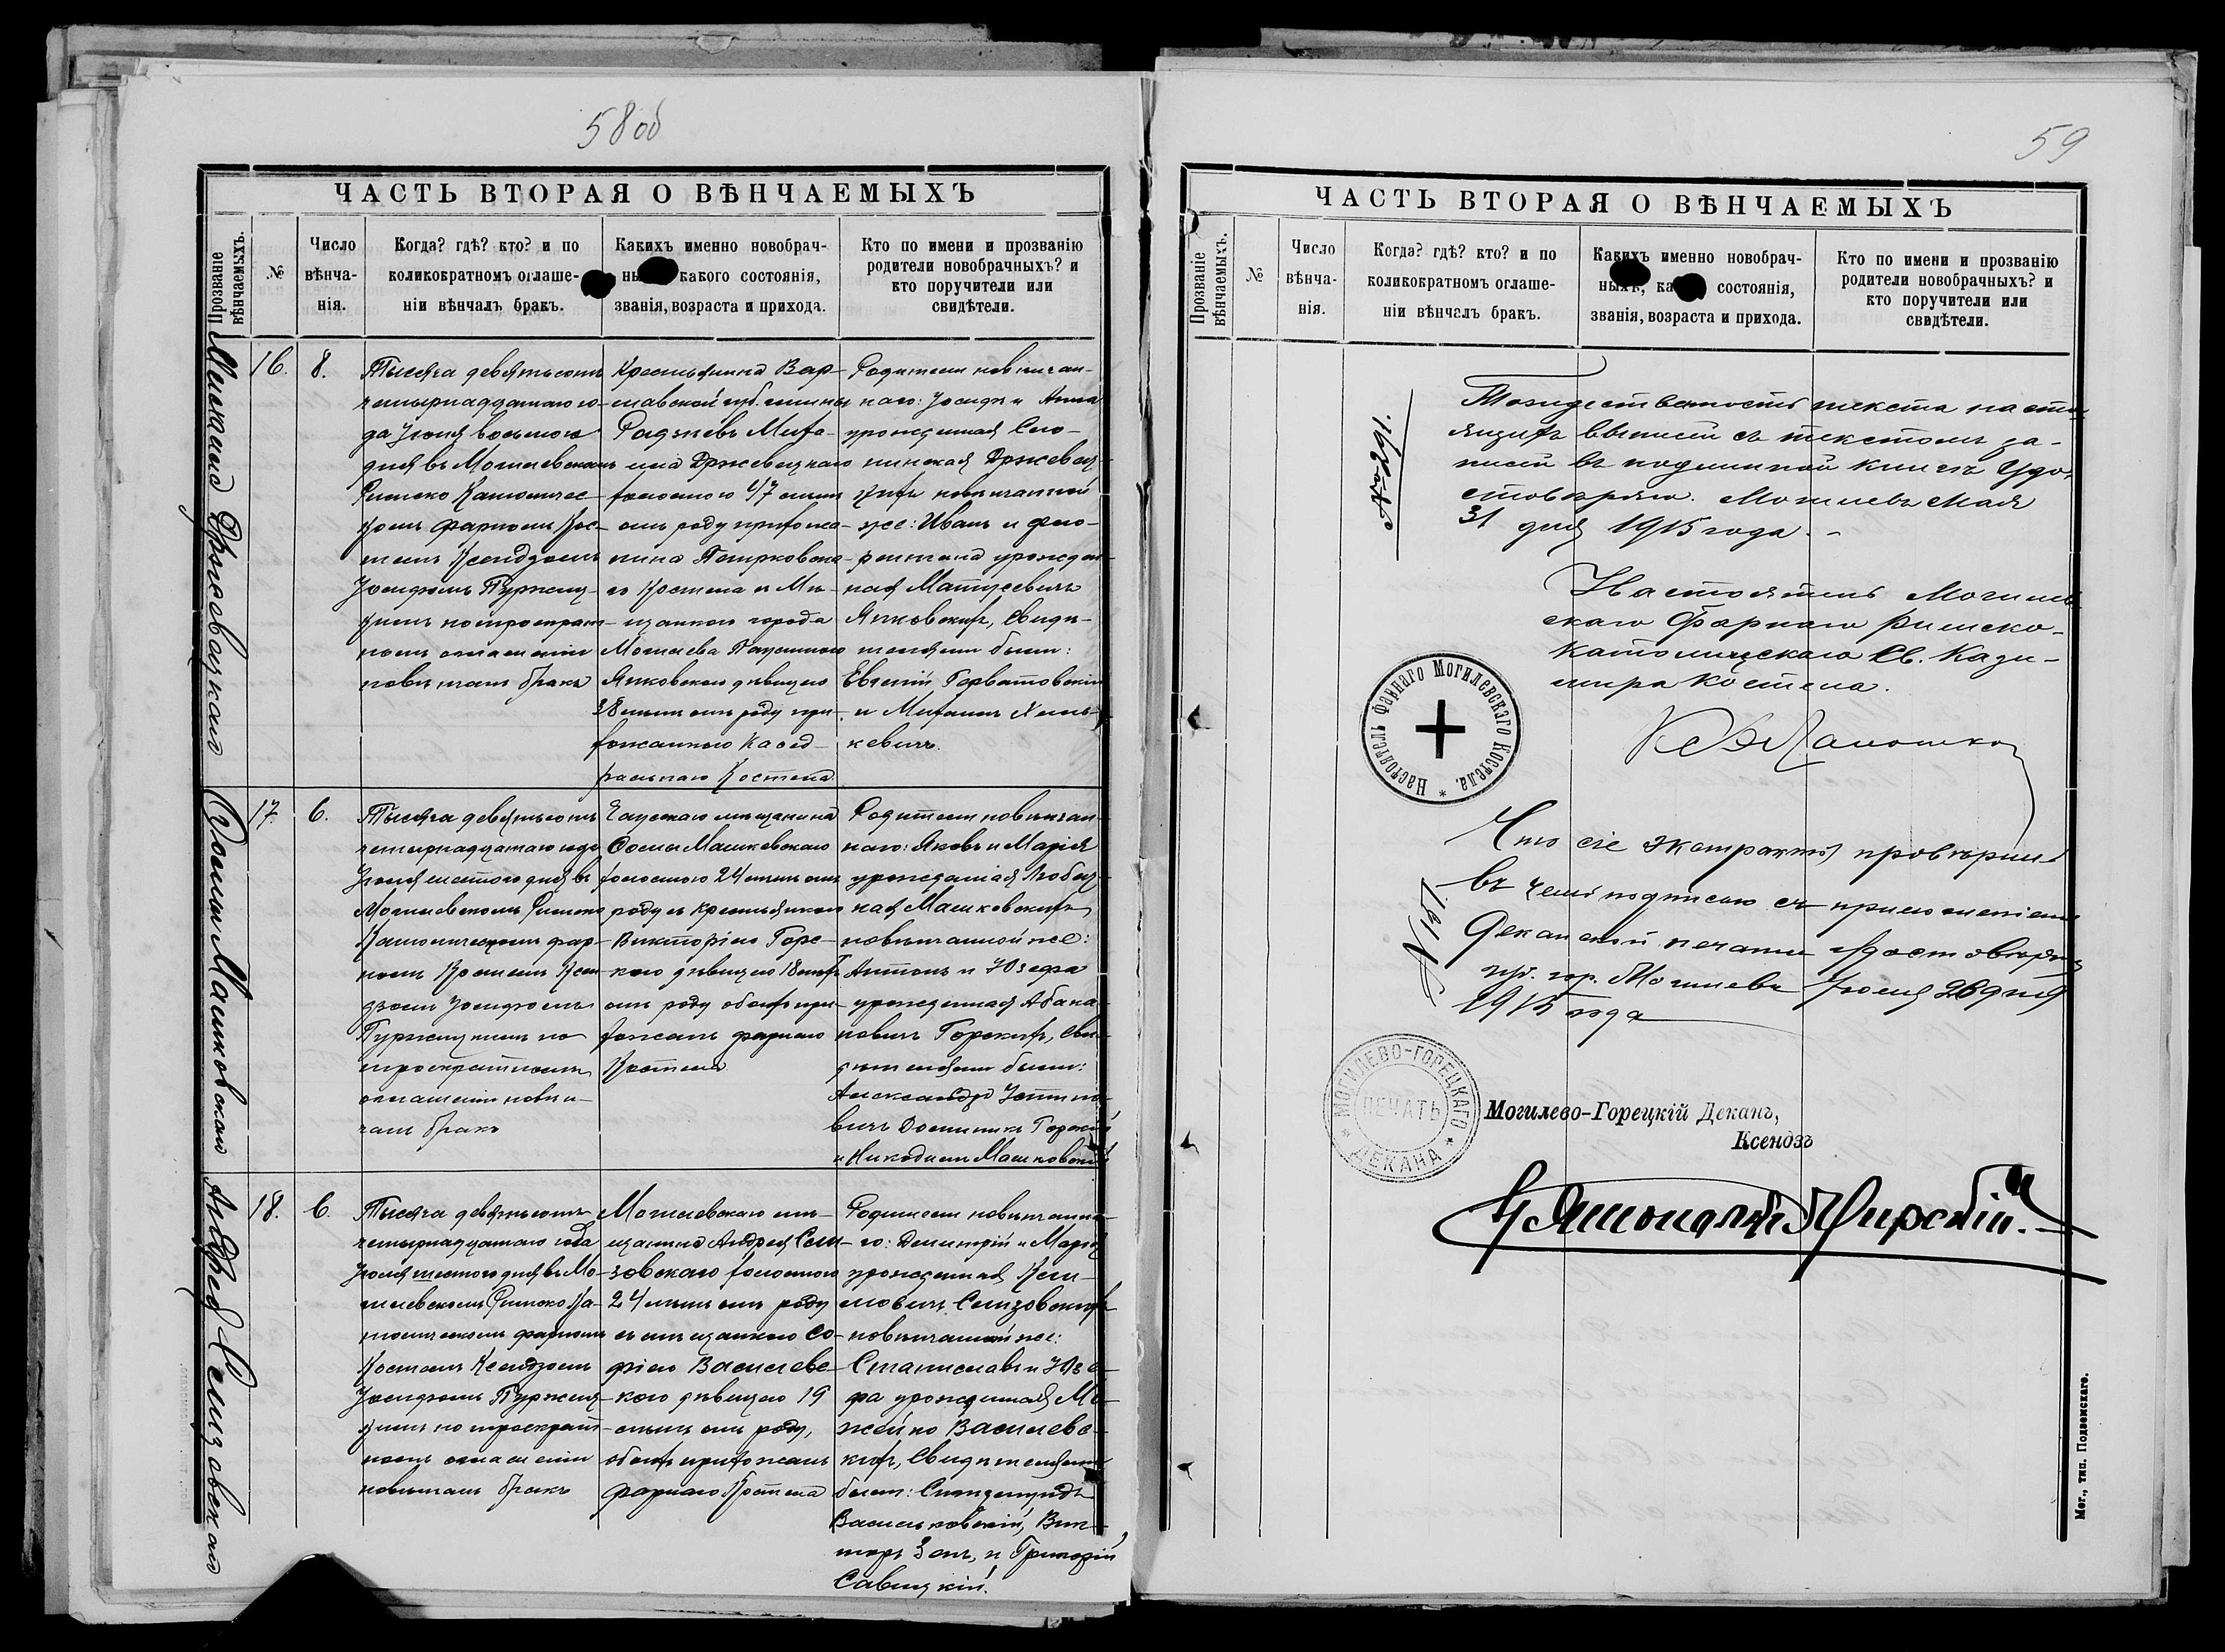 58 об
ЧАСТЬ ВТОРАЯ О ВѢНЧАЕМЫХЪ
Прозваніе вѣнчаемыхъ.
№
Число вѣнча-нія.
Когда? гдѣ? кто? и по
коликократномъ оглаше-
ніи вѣнчалъ бракъ.
Какихъ именно новобрач-
какого состоянія,
званія, возраста и прихода.
Кто по имени и прозванію
родители новобрачныхъ? и
кто поручители или
свидѣтели.
Михаила Држевецкаго
16.
8.
Тысяча девятьсотъ
четырнадцатаго го-
да Іюня восьмого
дня въ Могилевскомъ
Римско Католичес-
комъ фарномъ Кос-
телѣ Ксендзомъ
Іосифомъ
по троекрат-
номъ оглашеніи
повѣнчанъ бракъ
Крестьянина Вар-
шавской губ. гмины
Миха-
ила Држевецкаго
холостого 47 лѣтъ
отъ роду прихожа-
нина
го Костела съ Мѣ-
щанкою города
Могилева Паулиною
Янковскою дѣвицею
38 лѣтъ отъ роду при-
хожанкою Каѳед-
ральнаго Костела
Родители новобрачан-
наго: Іосифъ и Анна
урожденная
Држевец-
кихъ новѣнчанной
же: Иванъ и Фло-
рентина урожден-
ная Матусевичъ
Янковскихъ, Свидѣ-
телями были:
Евгеній Горватовскій
и Михаилъ
кевичъ.
Фомы Машковскаго
17.
6.
Тысяча девятьсотъ
четырнадцатаго года
Іюля шестого дня въ
Могилевскомъ Римско
Католическомъ фар-
номъ Костелѣ Ксен-
дзомъ Іосифомъ
по
троекратномъ
оглашеніи повѣн-
чанъ бракъ
Чаусскаго мѣщанина
Ѳомы Машковскаго
холостого 24 лѣтъ отъ
роду съ Крестьянкою
Викторіею Горс-
кою дѣвицею 18 лѣтъ
отъ роду обоихъ при-
хожанъ фарнаго
Костела
Родители новѣнчан-
наго: Яковъ и Марія
урожденная
Машковскихъ
новѣнчанной же:
Антонъ и Юзефа
урожденная Абака-
новичъ Горскихъ, Сви-
дѣтелями были:
Александръ
вичъ Доминикъ Горскій
и Никодимъ Машковскій
18.
6.
Тысяча девятьсотъ
четырнадцатаго года
Іюля шестого дня въ Мо-
гилевскомъ Римско Ка-
толическомъ фарномъ
Костелѣ Ксендзомъ
Іосифомъ
по троекрат-
номъ оглашеніи
повѣнчанъ бракъ
Могилевскаго мѣ-
щанина Андрея
холостого
24 лѣтъ отъ роду
съ мѣщанкою Со-
фіею Василевс-
кою дѣвицею 19
лѣтъ отъ роду,
обоихъ прихожанъ
фарнаго Костела
Родители новѣнчанна-
го: Дмитрій и Марія
урожденная
новѣнчанной же:
Станиславъ и Юзе-
фа урожденная Мо-
жейко Василевс-
кихъ, Свидѣтелями
были: Сигизмундъ
Василковскій, Вик-
торъ и Григорій
Савицкій.
59
ЧАСТЬ ВТОРАЯ О ВѢНЧАЕМЫХЪ
Прозваніе вѣнчаемыхъ.
№
Число вѣнча-нія.
Когда? гдѣ? кто? и по
коликократномъ оглаше-
ніи вѣнчалъ бракъ.
Какихъ именно новобрач-
состоянія,
званія, возраста и прихода.
Кто по имени и прозванію
родители новобрачныхъ? и
кто поручители или
свидѣтели.
Тождественность текста насто-
ящихъ выписи съ текстомъ за-
писи въ подлинной книгѣ Удо-
стовѣряю. Могилевъ Мая
31 дня 1915 года.
Настоятель Могилев-
скаго Фарнаго Римско-
Католическаго Св. Кази-
мира Костела.
Настоятель Фарнаго Могилевскаго Костела.
Что сіе экстрактъ провѣрилъ
въ чемъ подписью съ приложеніемъ
Деканской печати удостовѣряю
гор. Могилевъ Іюля 26 дня
1915 года
МОГИЛЕВО-ГОРЕЦКАГО ДЕКАНА
ПЕЧАТЬ
Могилево-Горецкій Деканъ,
Ксендзъ
Мог., тип. Подземскаго.